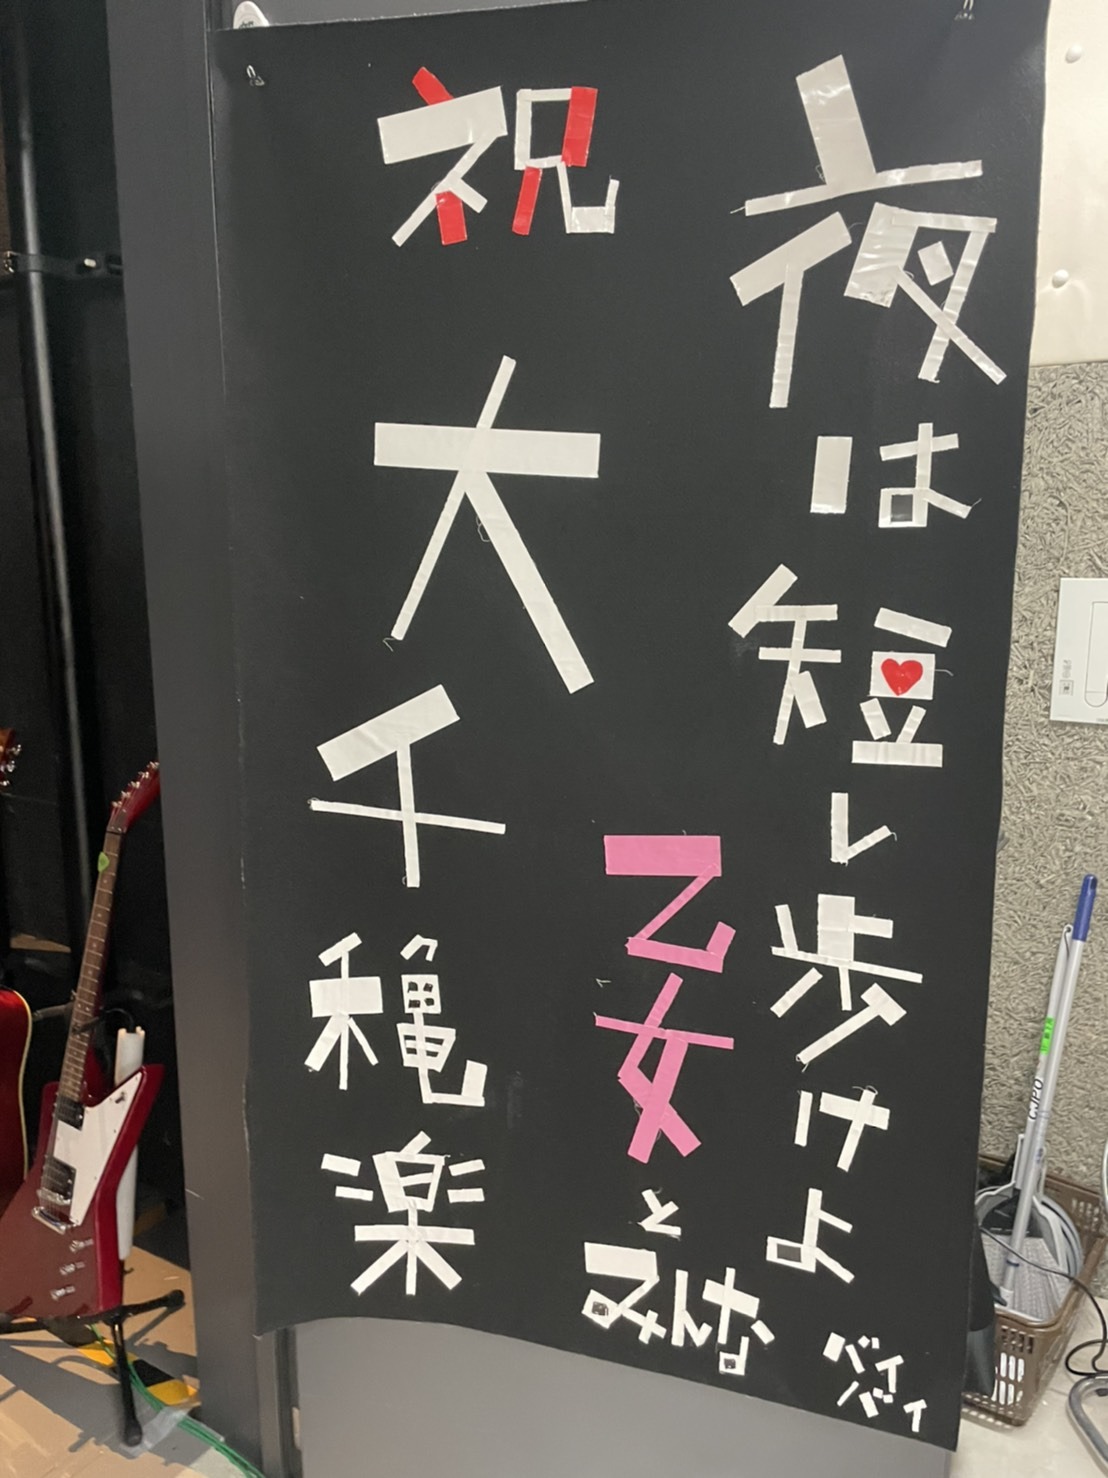 夜は短し歩けよ
乙女とみんな
バイバイ
祝
大千穐楽